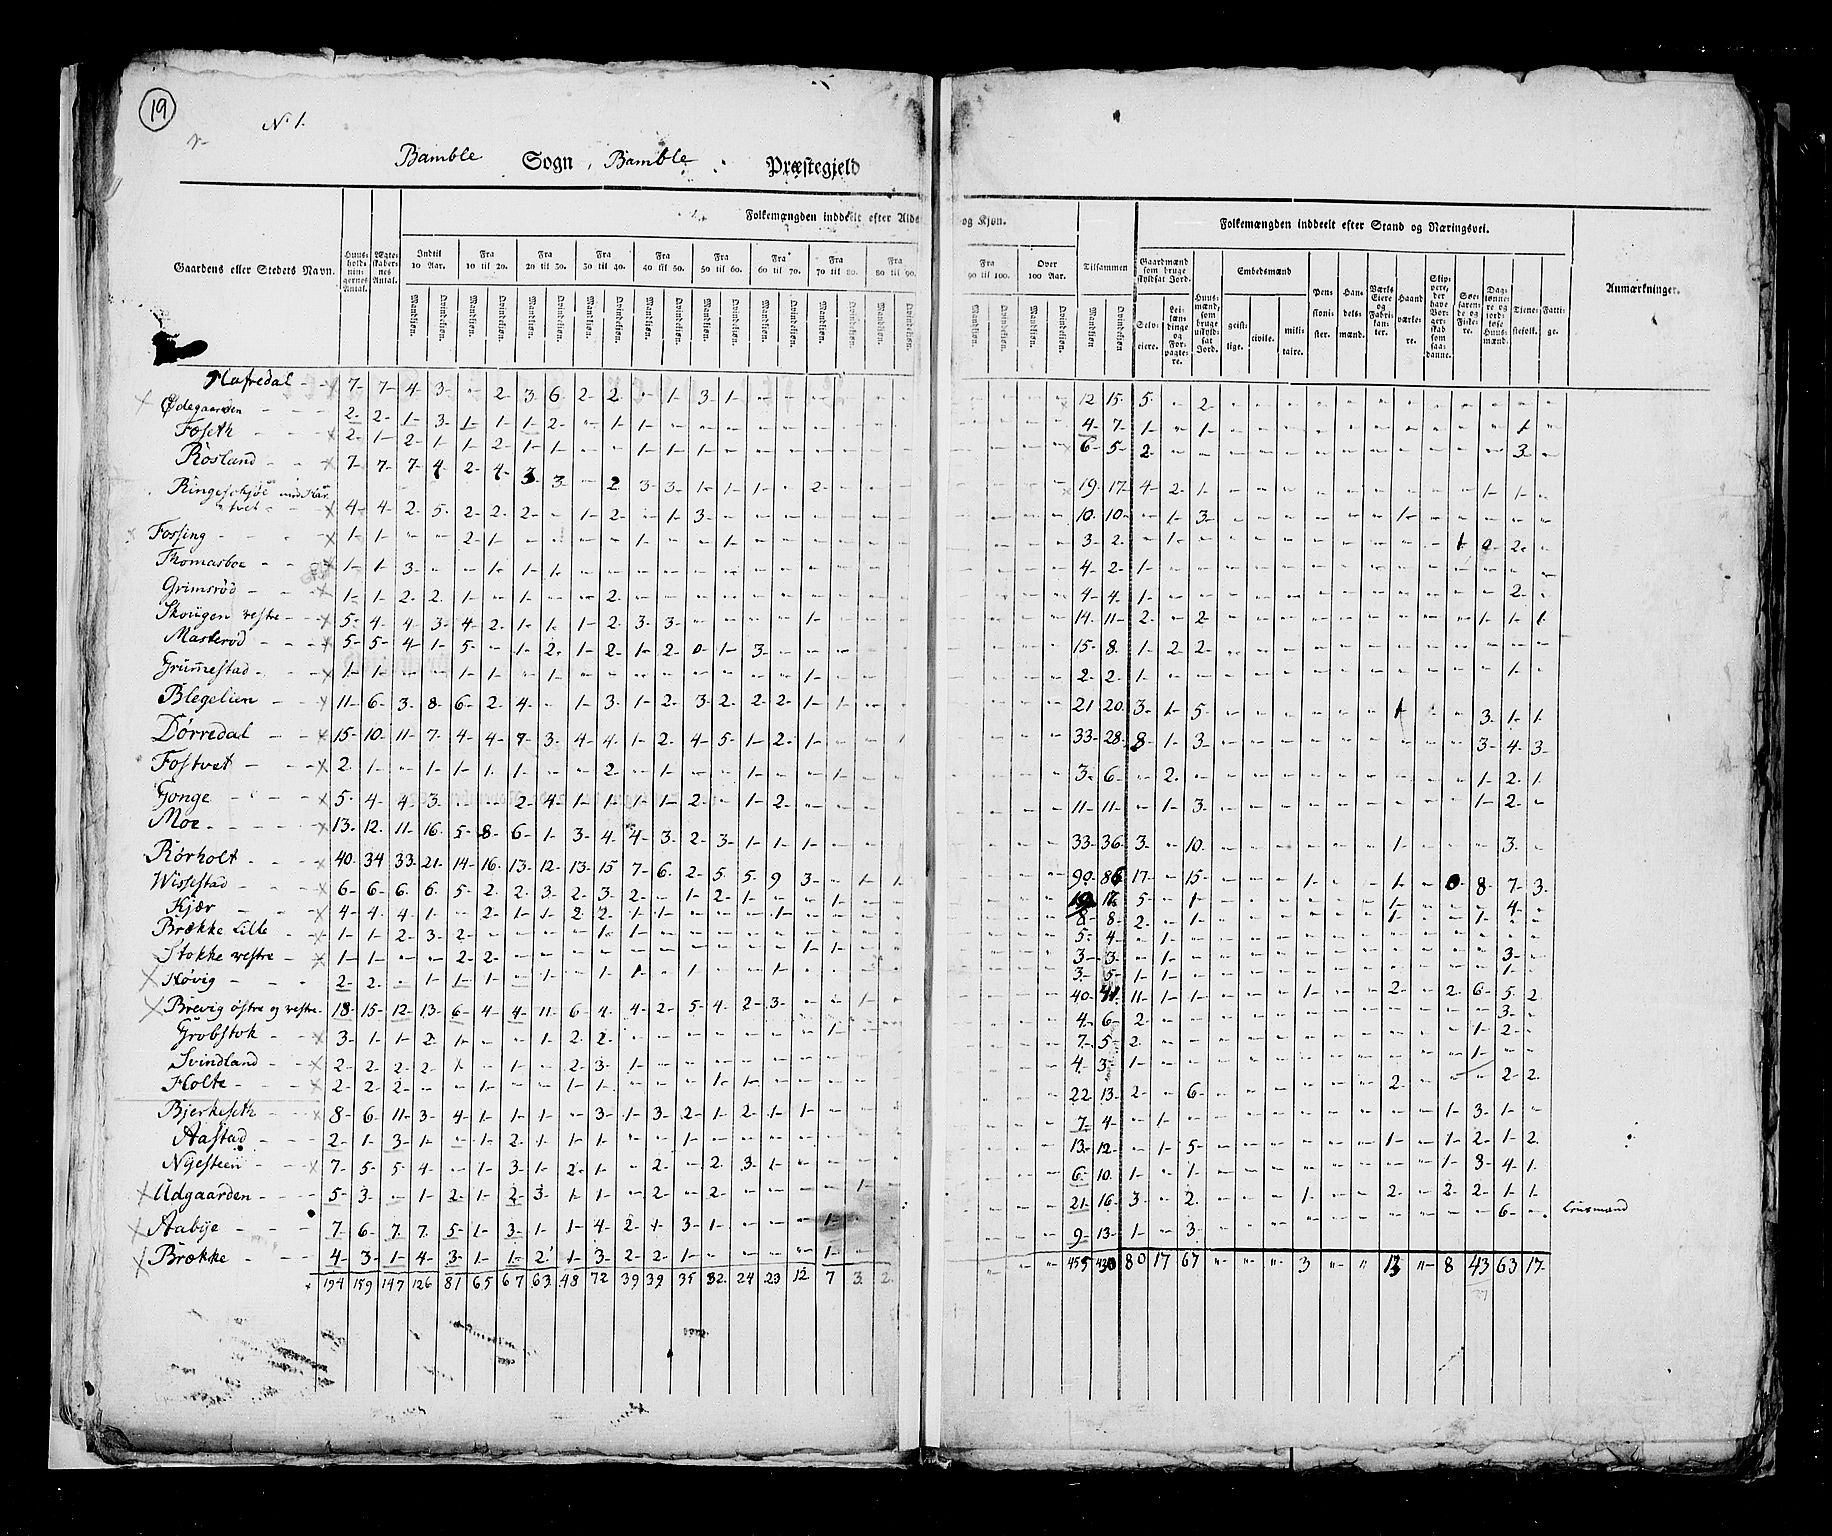 19
N. 1.
Bamble Sogn, Bamble Præstegjeld
Folkemængden inddeelt efter Alde og Kjøn.
Folkemængden inddeelt efter Stand og Næringsvei.
Gaardens eller Stedets Navn.
Huus-holdnin-gernes Antal.
Ægte-skaber-nes Antal.
Indtil 10 Aar. Fra 10 til 20. Fra 20 til 30. Fra 30 til 40. Fra 40 til 50. Fra 50 til 60. Fra 60 til 70. Fra 70 til 80. Fra 80 til 90. Fra 90 til 100. Over 100 Aar. Tilsammen
Mandkjøn. Qvindekjøn.
Gaardmænd som bruge skyldsat Jord.
Selv-eiere. Lei-læn-dinge og For-pagte-re.
Huus-mænd, som bruge uskyld-sat Jord.
Embedsmænd
geist-lige. civile. mili-taire.
Pen-sioni-ster. Han-dels-mænd. Værks Eiere og Fabri-kanter. Haand værke-re. Skip-pere, der have Bor-ger-skab som saa-danne. Søe-faren-de og Fi-skere. Dag-lønne-re og jord-løse Huus-mænd. Tjene-stefolk. Fatti-ge.
Anmærkninger.
Hafredal 7 7 4 3 " 2 3 6 2 2 " 1 3 1 12 15 5 " 2
Ødegaarden 2 2 1 3 1 1 1 2 " 1 1 4 7 1 " 1 1
Foseth 2 1 2 1 1 2 1 1 " 1 1 1 1 6 5 2 3
Rosland 7 7 7 4 2 4 3 3 " 2 3 3 1 1 1 " 2 19 17 4 2 1 1 1
Ringeschjøl med Kar
tvet 4 4 2 5 2 2 2 " 1 2 " 1 3 10 10 " 1 3 1
Fossing 1 1 " " 2 1 " " " " 1 " " 1 3 2 " 1 2
Thomasboe 1 1 3 " " 1 1 1 4 2 1
Grimsrød 1 1 2 2 1 " 1 " " 2 4 4 1 2
Skougen vestre 5 4 4 3 4 2 1 1 1 2 3 3 " " " " 1 14 11 2 " 2 1 1 1
Masterød 5 5 4 1 5 " 1 2 1 2 1 2 0 1 3 15 8 1 2 2
Grummestad 1 1 " " 1 1 " 1 1 2 2 1 1
Blegelien 11 6 3 8 6 2 4 " 1 3 1 2 3 2 2 2 1 1 21 20 3 1 5 1 3 1 1
Dørredal 15 10 11 7 4 4 7 3 4 4 1 2 4 5 1 2 1 33 28 8 1 3 3 4 3
Fostvet 2 1 " 1 1 1 1 " " 2 " 1 " 1 " " " 1 3 6 " 2 1 2 1
Gonge 5 4 4 3 " " 2 4 1 1 1 1 2 " 1 2 11 11 " 1 3 1 2
Moe 13 12 11 16 5 8 6 1 3 4 4 3 2 3 1 1 1 33 36 3 " 10 1 3
Rørholt 40 34 33 21 14 16 13 12 13 15 7 6 2 5 5 9 3 " 1 1 90 86 17 " 15 1 1 0 8 7 3
Wissestad 6 6 6 6 5 2 2 3 2 3 2 " 1 2 1 5 " 1 1 4
Kjær 4 4 4 1 " 2 1 1 2 2 1 1 " " " 1 8 8 2 " 1 1 1
Brække Lille 1 1 2 3 2 " " " " 1 1 5 4 " 1
Stokke vestre 1 1 " " 2 2 1 1 3 3 " 1 3
Høvig 2 2 " 1 1 1 " 1 " 1 1 " 1 " " 1 3 5 1 1 1
Brevig østre og vestre 18 15 12 13 6 4 4 11 6 4 4 2 5 4 2 3 " " 1 40 41 11 1 1 1 2 2 6 5 2
Grobstok 3 1 1 2 1 " " 1 2 2 " " " " " " " 1 4 6 2 3
Svindland 2 2 2 2 1 " 1 " 2 3 1 7 5 2 1 2
Holte 2 2 2 " " 1 " " 1 1 " " " 1 1 4 3 1 1
Bjerkeseth 8 6 11 3 4 1 1 1 " 3 1 3 2 1 2 1 1 22 13 2 " 6 2 2 2
Aastad 2 1 3 1 " 1 2 1 1 1 " " 1 7 4 " 1 1 3 1
Nyesteen 7 5 5 4 " 1 3 1 2 1 " 2 " 2 3 1 13 12 " 1 5 1 1 2 1 2
Udgaarden 5 3 " 1 2 1 2 3 1 1 " 2 " 2 " " " " 1 6 10 1 " 1 1 3 4 1
Aabye 7 6 7 7 5 1 3 1 1 4 2 1 3 1 " " " 1 21 16 3 " 2 1 2 2 2 1 1
Brække 4 3 1 4 3 1 1 2 1 3 2 2 1 " " " " 1 9 13 1 " 3 6
194 159 147 126 81 65 67 63 48 72 39 39 35 32 24 23 12 7 3 2 455 430 80 17 67 " " " 3 " " 13 " 8 43 63 17